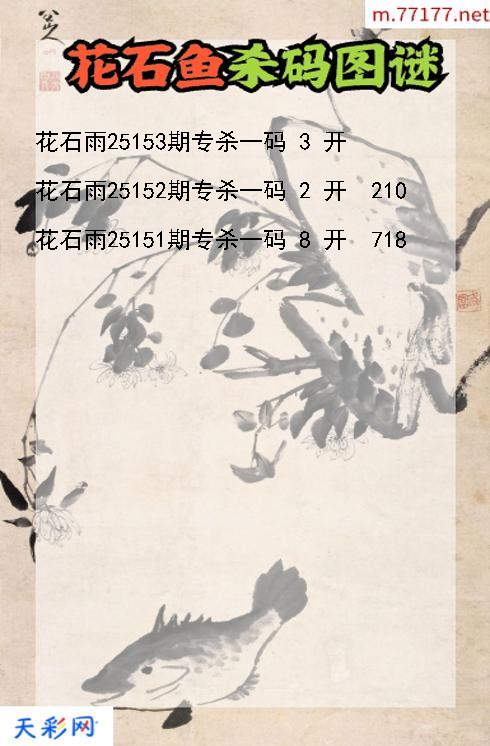 m.77177.net
花石鱼杀码图谜
花石雨25153期专杀一码 3 开
花石雨25152期专杀一码 2 开 210
花石雨25151期专杀一码 8 开 718
天彩网